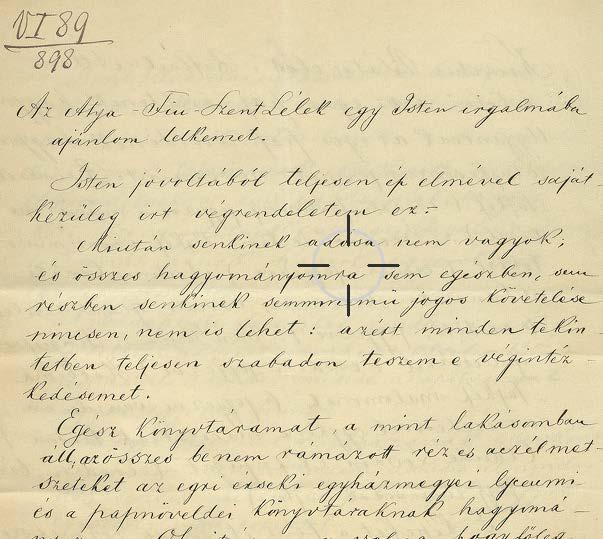 VI 89
898
Az Atya - Fiu - Szent Lélek egy Isten irgalmába
ajánlom lelkemet.
Isten jóvoltából teljesen ép elmével saját-
kezüleg irt végrendeletem ez:-
Miután senkinek adósa nem vagyok;
és összes hagyományomra sem egészben, sem
részben senkinek semmi nemü jogos követelése
nincsen, nem is lehet: azért minden tekin-
tetben teljesen szabadon teszem e végintéz-
kedésemet.
Egesz könyvtáramat, a mint lakásomban
áll, az összes be nem rámázott réz és aczélmet-
szeteket az egri érseki egyházmegyei lyceumi
és a papnöveldei könyvtáraknak hagyomá-